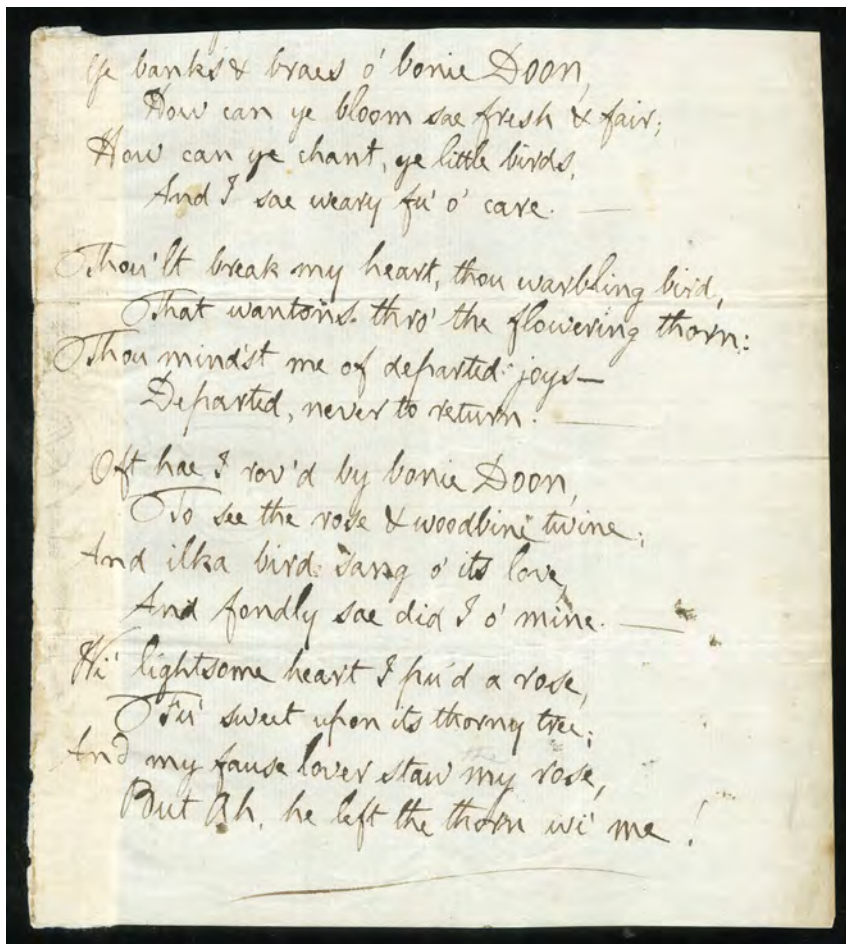 Ye banks & braes o' bonie Doon,
How can ye bloom sae fresh & fair;
How can ye chant, ye little birds,
And I sae weary fu' o' care. —
Thou'lt break my heart, thou warbling bird,
That wantons thro' the flowering thorn:
Thou mind'st me of departed joys—
Departed, never to return. —
Oft hae I rov'd by bonie Doon,
To see the rose & woodbine twine;
And ilka bird sang o' its love,
And fondly sae did I o' mine. —
Wi' lightsome heart I pu'd a rose,
Fu' sweet upon its thorny tree;
And my fause lover staw my rose,
But Ah, he left the thorn wi' me!